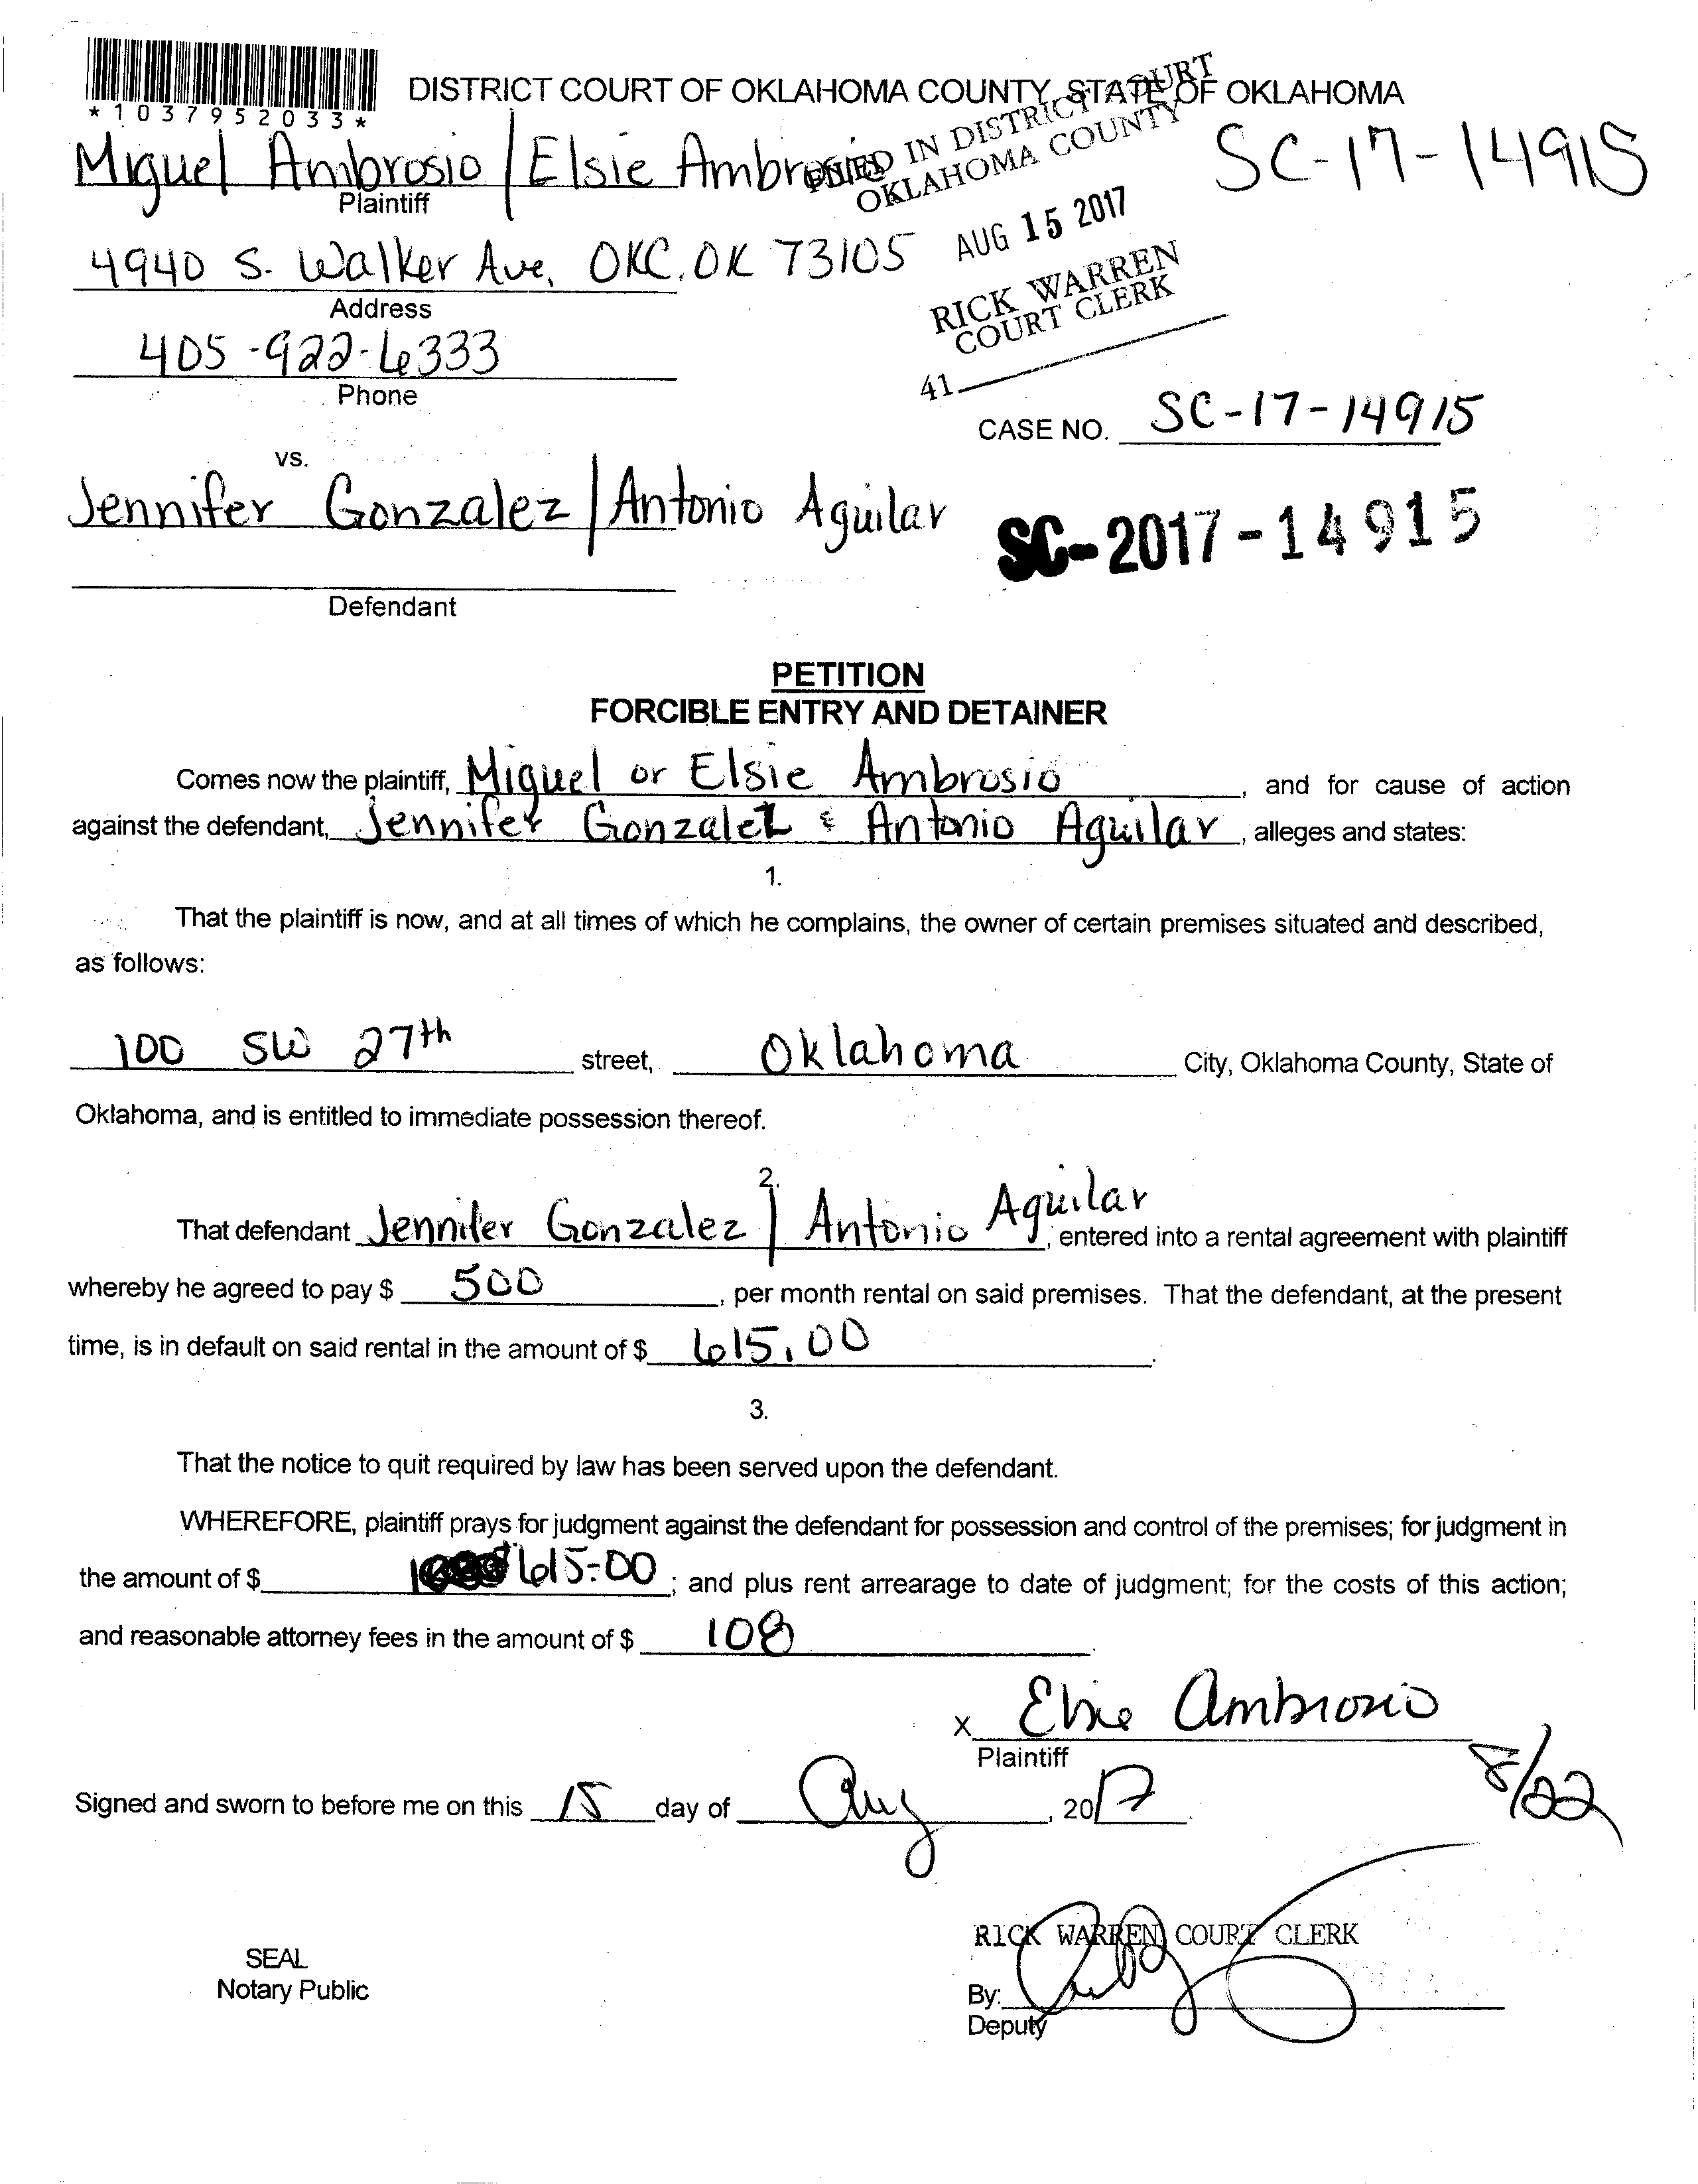 DISTRICT COURT OF OKLAHOMA COUNTY, STATE OF OKLAHOMA
*1037952033*
FILED IN DISTRICT COURT
OKLAHOMA COUNTY
SC-17-14915
Miguel Ambrosio / Elsie Ambrosio
Plaintiff
AUG 15 2017
4940 S. Walker Ave, OKC, OK 73105
Address
RICK WARREN
COURT CLERK
405-922-6333
Phone
41
CASE NO. SC-17-14915
vs.
Jennifer Gonzalez / Antonio Aguilar
SC-2017-14915
Defendant
PETITION
FORCIBLE ENTRY AND DETAINER
Comes now the plaintiff, Miguel or Elsie Ambrosio, and for cause of action
against the defendant, Jennifer Gonzalez & Antonio Aguilar, alleges and states:
1.
That the plaintiff is now, and at all times of which he complains, the owner of certain premises situated and described,
as follows:
100 SW 27th street, Oklahoma City, Oklahoma County, State of
Oklahoma, and is entitled to immediate possession thereof.
2.
That defendant Jennifer Gonzalez / Antonio Aguilar, entered into a rental agreement with plaintiff
whereby he agreed to pay $ 500, per month rental on said premises. That the defendant, at the present
time, is in default on said rental in the amount of $ 615.00.
3.
That the notice to quit required by law has been served upon the defendant.
WHEREFORE, plaintiff prays for judgment against the defendant for possession and control of the premises; for judgment in
the amount of $ 615.00; and plus rent arrearage to date of judgment; for the costs of this action;
and reasonable attorney fees in the amount of $ 108.
x Elsie Ambrosio
Plaintiff
8/22
Signed and sworn to before me on this 15 day of Aug, 2017.
RICK WARREN COURT CLERK
SEAL
Notary Public
By:
Deputy